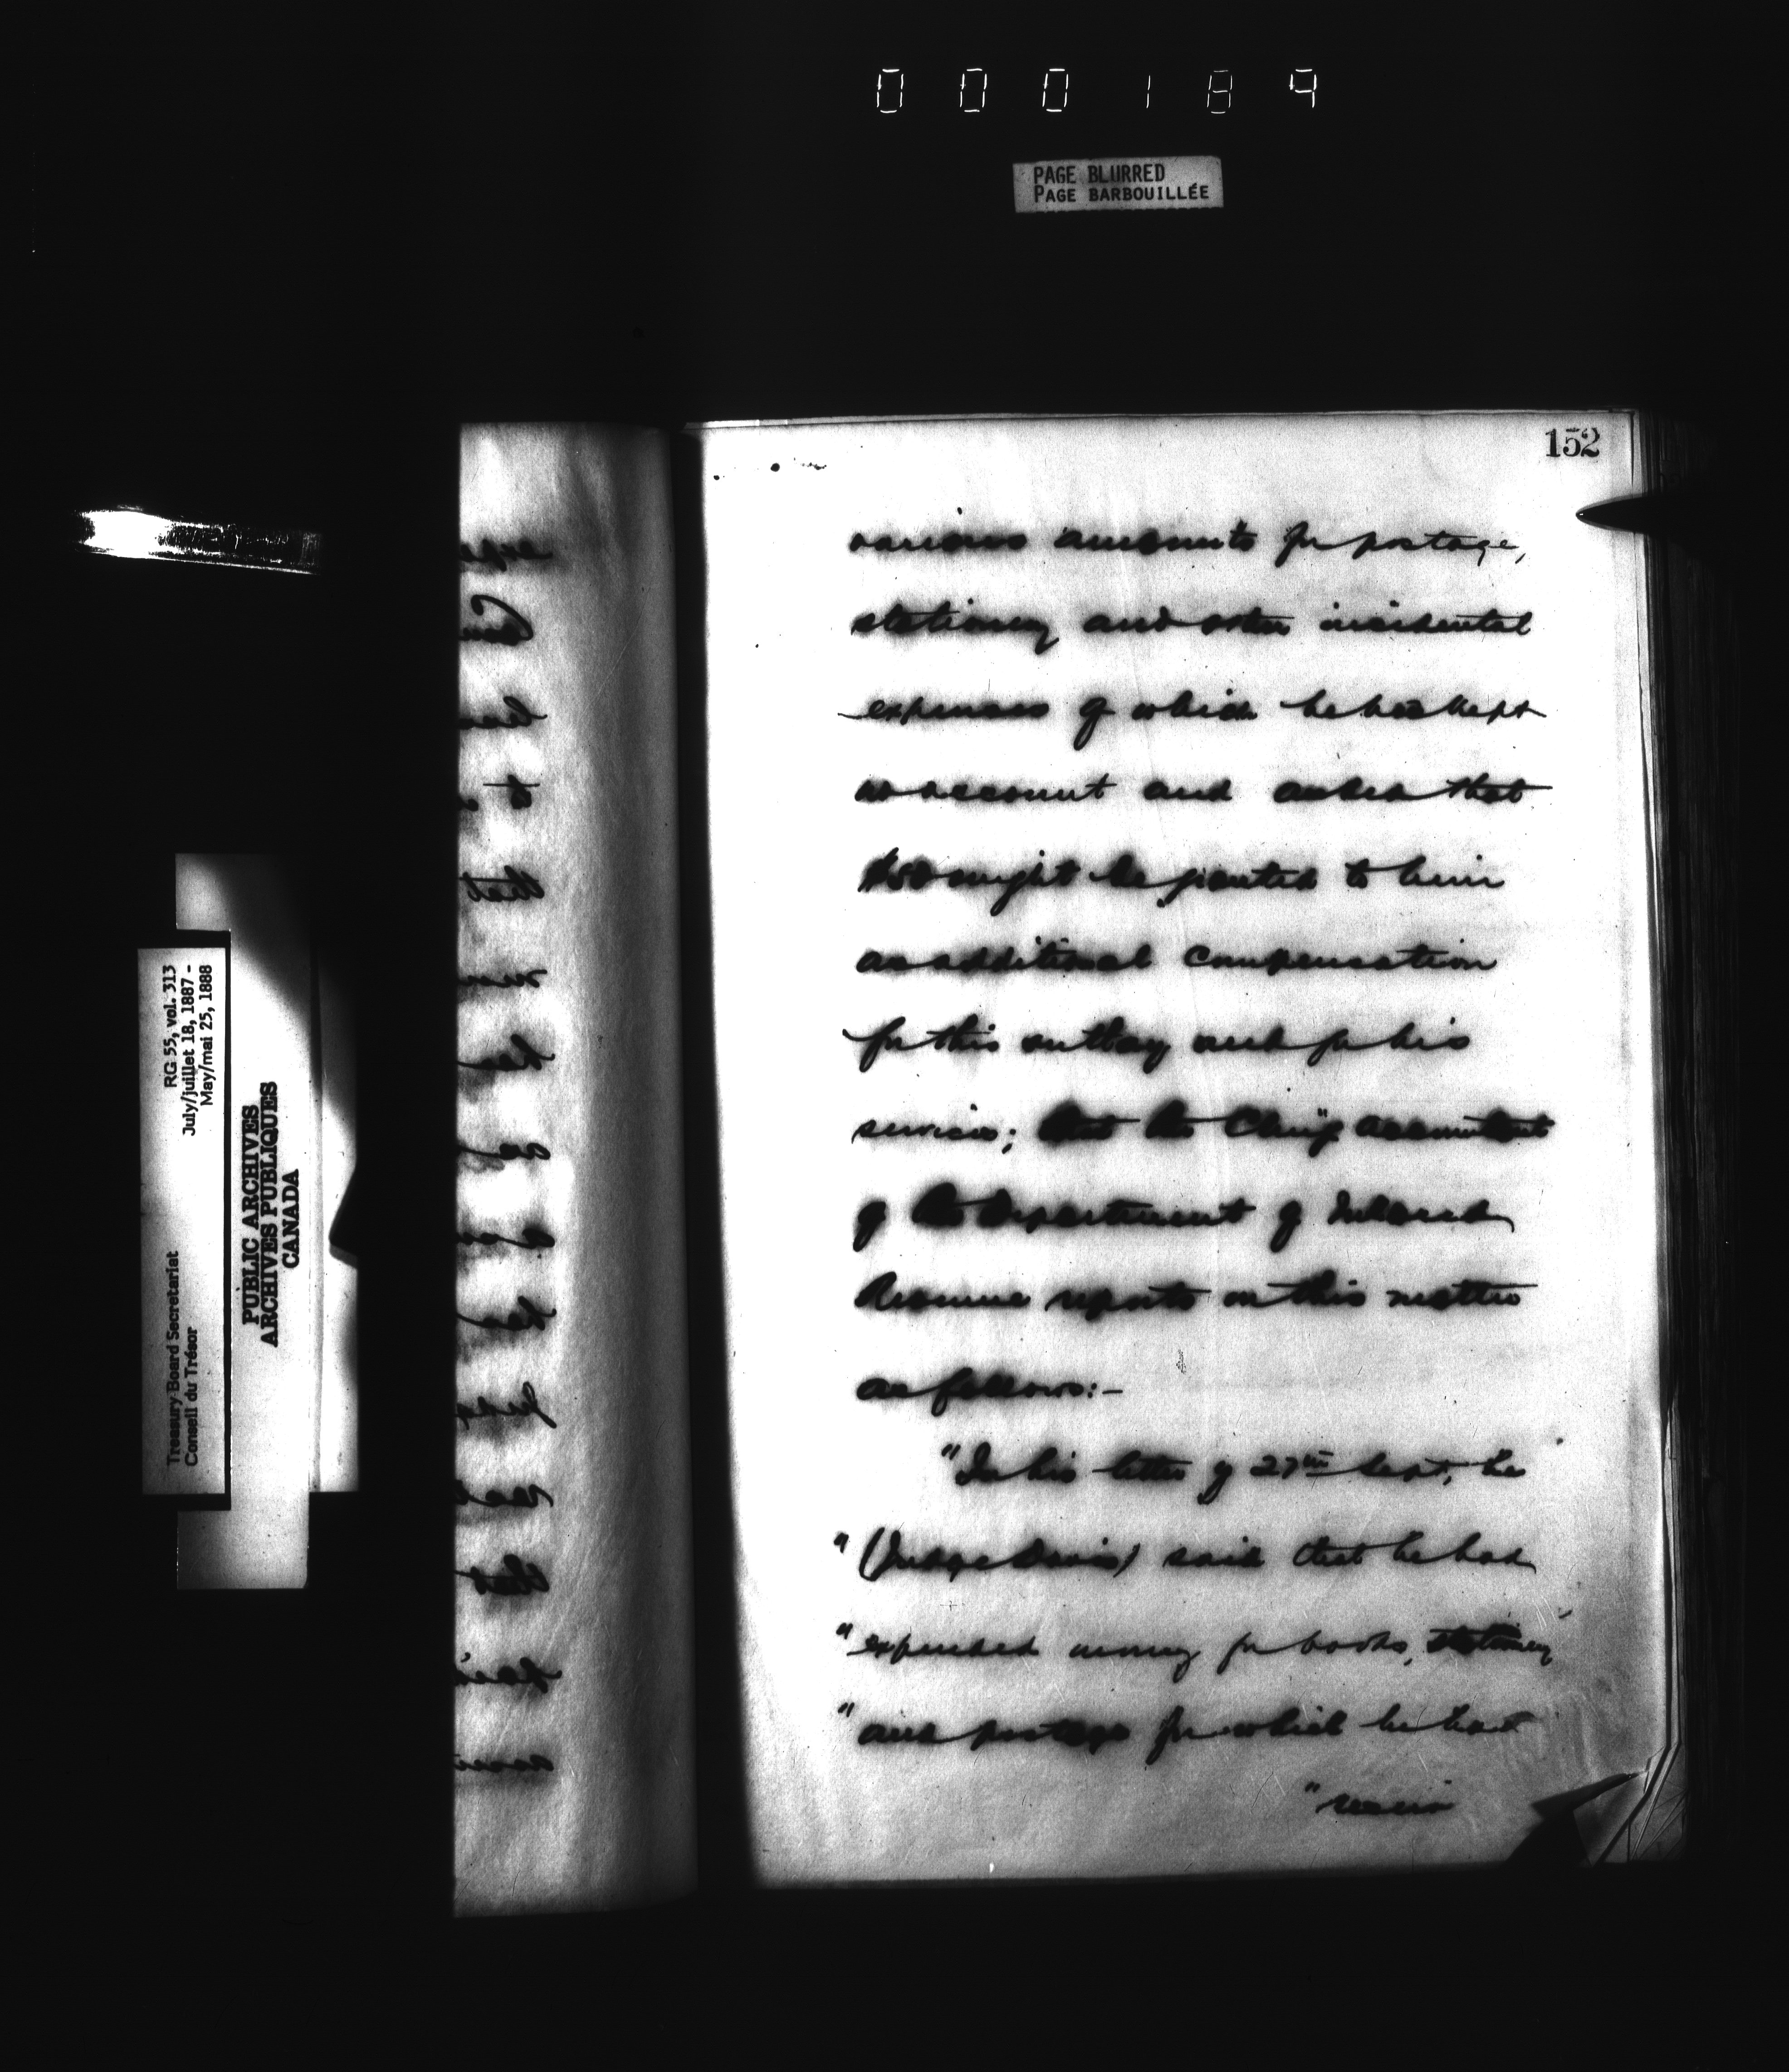 000184
PAGE BLURRED
PAGE BARBOUILLÉE
152
various amounts for postage,
stationery and other incidental
expenses of which he has kept
no account and asked that
might be granted to him
as additional compensation
for this outlay and for his
services; that the Chief accountant
of the Department of Inland
Revenue reports on this matter
as follows:-
"In his letter of 27th Sept. he
"(Judge Davis) said that he had
"expended money for books, stationery
"and postage for which he had
RG 55, vol. 313
July/juillet 18, 1887 -
May/mai 25, 1888
Treasury Board Secretariat
Conseil du Trésor
PUBLIC ARCHIVES
ARCHIVES PUBLIQUES
CANADA